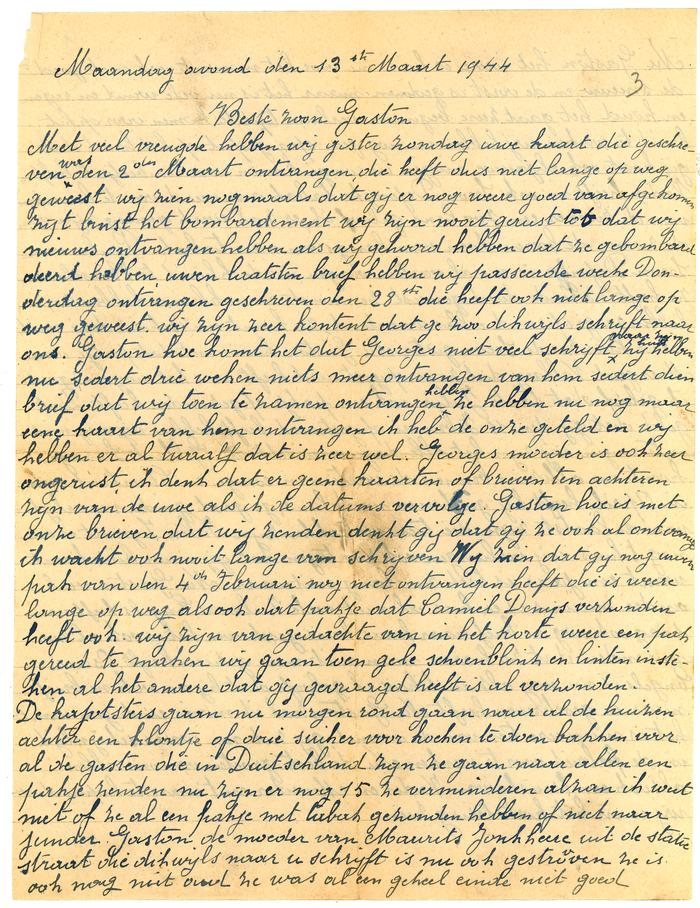 Maandag avond den 13 ste Maart 1944
3
Beste zoon Gaston
Met veel vreugde hebben wij gister zondag uwe kaart die geschre-
ven was den 2 den Maart ontvangen, die heeft dus niet lange op weg
geweest wij zien nogmaals dat gij er nog weere goed van afgekomen
zijt binst het bombardement wij zijn nooit gerust tot dat wij
nieuws ontvangen hebben als wij gehoord hebben dat ze gebombar
deerd hebben, uwen laatsten brief hebben wij passeerde weeke Don-
derdag ontvangen geschreven den 28 ste die heeft ook niet lange op
weg geweest. wij zijn zeer kontent dat ge zoo dikwijls schrijft naar
ons. Gaston hoe komt het dat Georges niet veel schrijft, naar zijn huis zij hebben
nu sedert drie weken niets meer ontvangen van hem sedert dien
brief dat wij toen te zamen ontvangen hebben ze hebben nu nog maar
eene kaart van hem ontvangen ik heb de onze geteld en wij
hebben er al twaalf dat is zeer wel. Georges moeder is ook zeer
ongerust, ik denk dat er geene kaarten of brieven ten achteren
zijn van de uwe als ik de datums vervolge. Gaston hoe is met
onze brieven dat wij zenden denkt gij dat gij ze ook al ontvangt
ik wacht ook nooit lange van schrijven Wij zien dat gij nog uwen
pak van den 4 en Februari nog niet ontvangen heeft die is weere
lange op weg als ook dat pakje dat Camiel Denys verzonden
heeft ook. wij zijn van gedachte van in het korte weere een pak
gereed te maken wij gaan toen gele schoenblink en linten inste-
ken al het andere dat gij gevraagd heeft is al verzonden.
De kajotsters gaan nu morgen rond gaan naar al de huizen
achter een klontje of drie suiker voor koeken te doen bakken voor
al de gasten die in Duitschland zijn ze gaan naar allen een
pakje zenden nu zijn er nog 15 ze verminderen alzan ik weet
niet of ze al een pakje met tabak gezonden hebben of niet naar
junder Gaston de moeder van Maurits Jonkheere uit de statie
straat die dikwijls naar u schrijft is nu ook gestorven ze is
ook nog niet oud ze was al een geheel einde niet goed